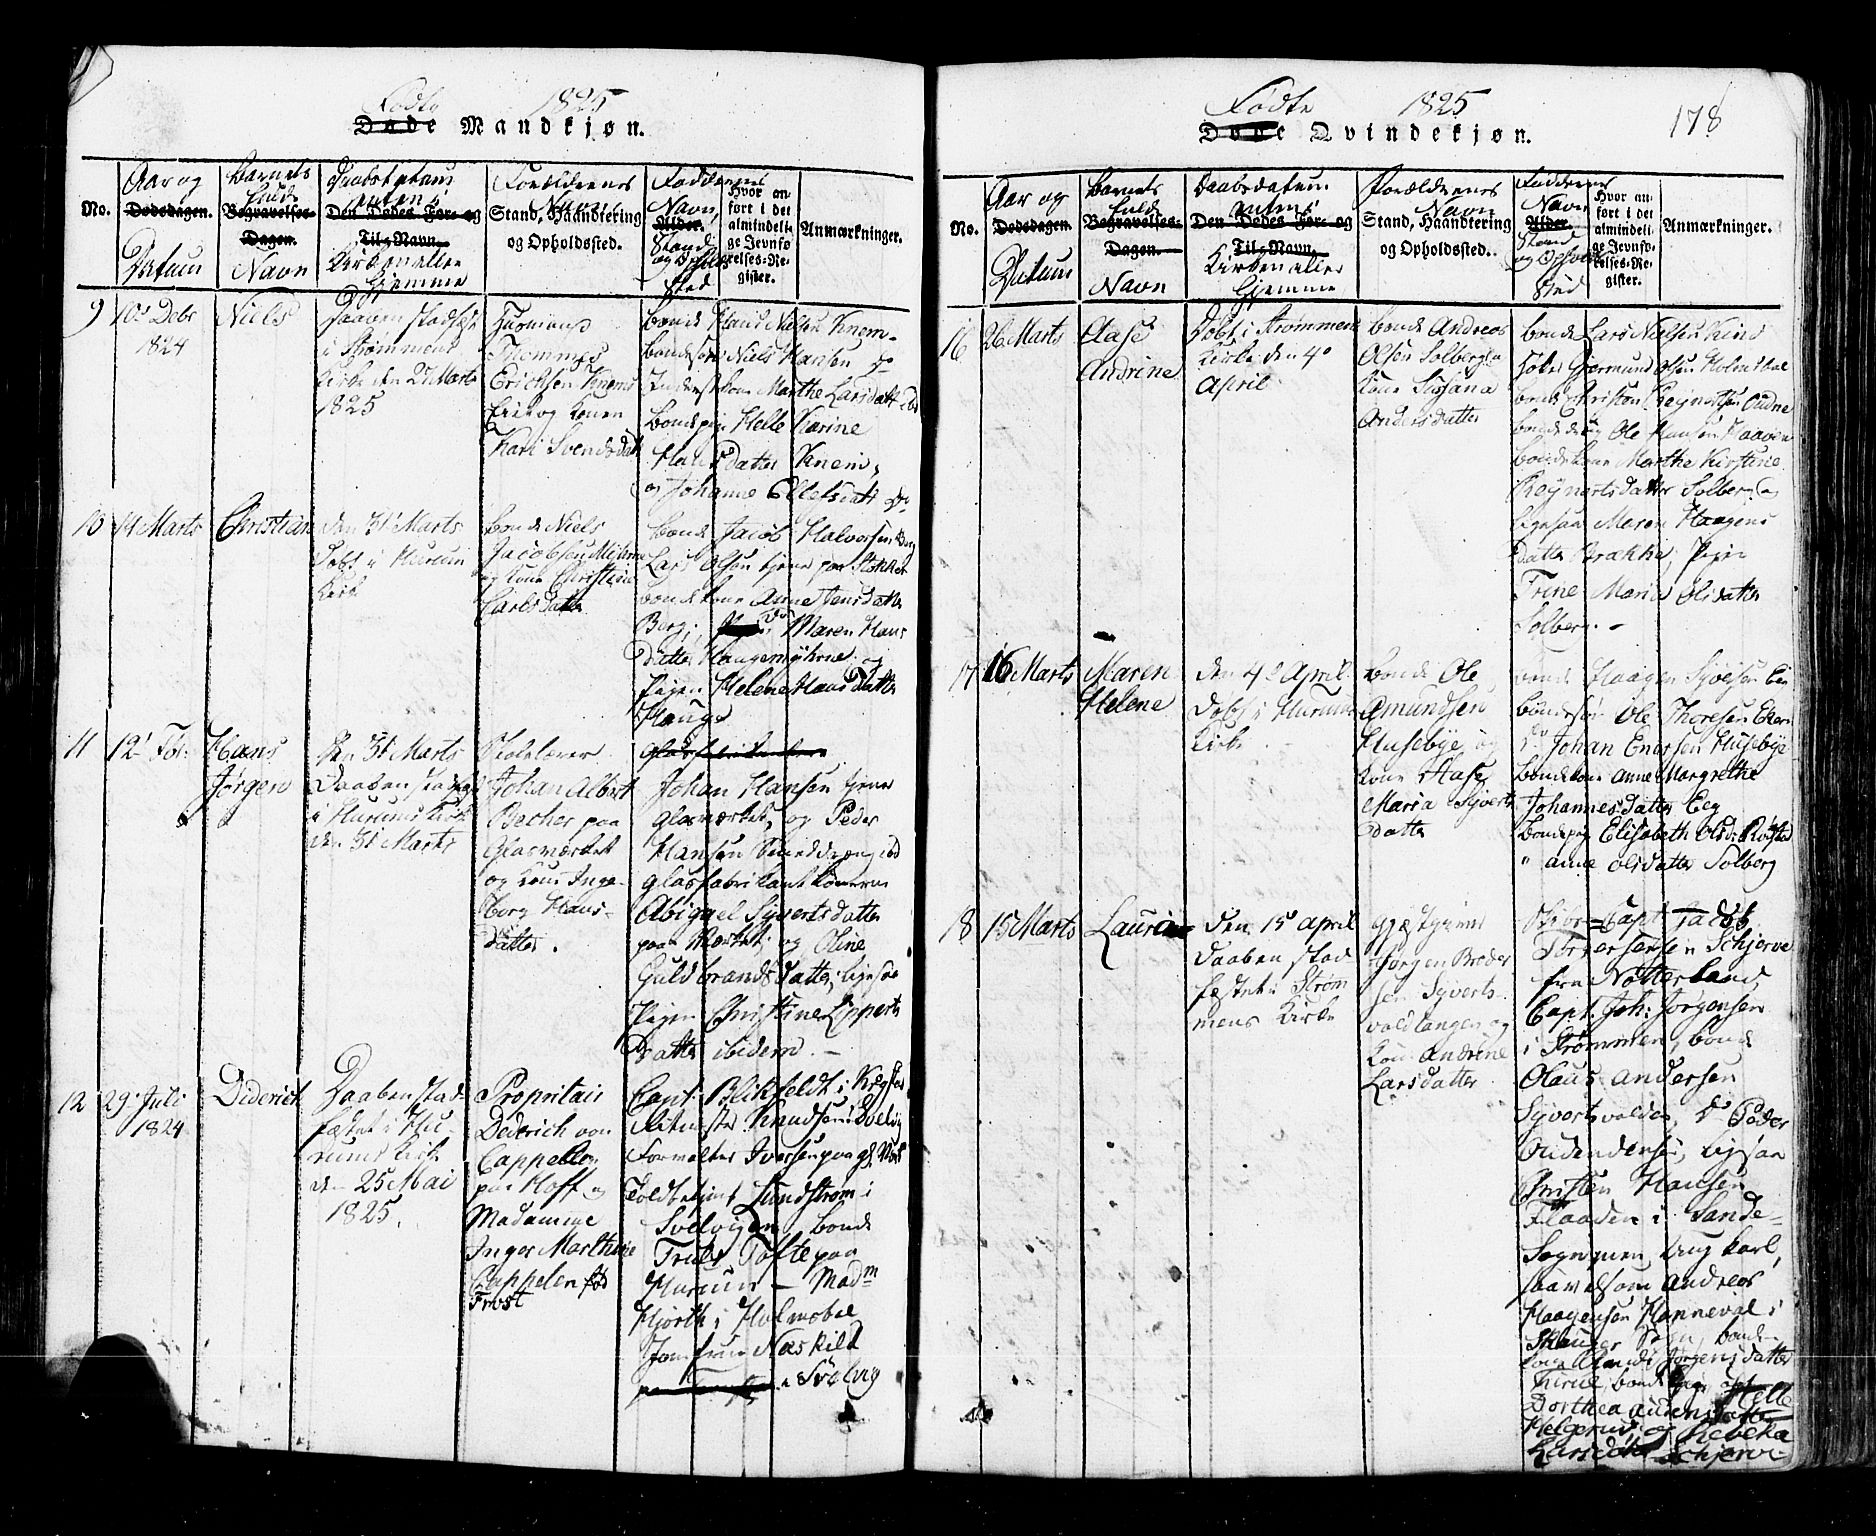 Fødte 1825
Døde Mandkjøn.
No.
Aar og
Dødsdagen.
Datum
Barnets
fulde
Begravelses-
Dagen.
Navn
Daabsdatum
enten i
Den Dødes For- og
Til-Navn.
Kirken eller
Hjemme
Forældrenes
Navn
Stand, Haandtering
og Opholdssted.
Faddernes
Navn,
Alder.
Stand
og Opholds
sted
Hvor an-
ført i det
almindeli-
ge Jevnfø-
relses-Re-
gister.
Anmærkninger.
9
10de Debr
1824
Niels
Daaben stadfæst
i Strømmens
Kirke den 27 Marts
1825
Huusmand
Thommes
Erichsen Knem
Eie og Konen
Kari Svendsdatt
bonde Hans Nielsen Knem-
bondesøn Niels Hansen do
Inderst kone Marthe Larsdatt do
bondepige Helle Karine
Hansdatter Knem,
og Johanne Ellefsdatt do
10
14 Marts
Christian
den 31 Marts
Døbt i Hurum
Kirke
bonde Niels
Jacobsen Myhrene
og kone Christiane
Carlsdatter
bonde Jacob Halvorsen Berg
Lars Olsen tjener paa Stokker
bondekone Anne Jensdatter
Berg; do Maren Hans
Datter Haugemyhrene og
Pigen Helene Hansdatter
Hauge
11
12 Febr.
Hans
Jørgen
Den 31 Marts
Daaben stadfæst
i Hurums Kirke
den 31 Marts
Skolelærer
Johan Albert
Becher paa
Glasværket
og Kone Inge-
borg Hans-
datter.
Johan Hansen tjener
Glasværket, og Peder
Hansen Smeddreng ibd
Glasfabrikant Konerne
Abigael Syvertsdatter
paa Værket; og Oline
Guldbrandsdatter, ligesaa
Pigen Christine Lipperts
Datter ibidem. —
12
29 Juli
1824
Diderich
Daaben stad
fæstet i Hu-
rums Kirke
den 25 Mai
1825.
Propritair
Dederich von
Cappelen
paa Hoff og
Madamme
Inger Marthine
Cappelen fød
Frost
Capt: Blichfeldt i
Ritmester Knudsen i Svelvig
Forvalter Iversen paa gl. Værk
Toldbetjent Lundstrøm i
Svelvigen, bonde
Truls Tofte paa
Hurum — Madm
Hjorth i Holmsboe
Jomfrue Naskild
i Svelvig
Fødte 1825 178
Døde Qvindekjøn.
No.
Aar og
Dødsdagen.
Datum
Barnets
fulde
Begravelses-
Dagen.
Navn
Daabsdatum
enten i
Den Dødes For- og
Til-Navn.
Kirken eller
Hjemme
Forældrenes
Navn
Stand, Haandtering
og Opholdssted.
Faddernes
Navn
Alder.
Stand
og Opholds
Sted
Hvor an-
ført i det
almindeli-
ge Jevnfø-
relses-Re-
gister.
Anmærkninger.
16
26 Marts
Aase
Andrine
Døbt i Strømmens
Kirke den 4de
April
bonde Andreas
Olsen Solberg og
kone Susana
Andersdatter
bonde Lars Nielsen
Gjermund Olsen Holmsboe
bonde Christen Reynertsen
bondedreng Ole Hansen Haaven
bondekone Marthe Kirstine
Reynertsdatter Solberg og
ligesaa Maren Haagens
Datter Brække, Pigen
Trine Marie Olsdatter
Solberg. -
17
16 Marts
Maren
Helene
den 4de April
døbt i Hurum
Kirke
bonde Ole
Amundsen
Husebye og
kone Aase
Maria Syverts
datter
bonde Haagen
bondesøn Ole Thoresen Ekern
do Johan Enersen Husebye
bondekone Anne Margrethe
Johannesdatter Eeg
bondepige Elisabeth Olsd: Røjsted
" Anne Olsdatter Solberg
18
15 Marts
Laurine
Den 15 April
Daaben stad
fæstet i Strøm
mens Kirke
Gjæstgiver
Jørgen Breder
sen Syverts
voldtangen og
Kone Andrine
Larsdatter
Skibs-Capt. Jacob
Torgersen Schjerve
fra Nøtterland,
Capt. Joh: Jørgensen
i Strømmen, bonde
Olaus Andersen
Syvertsvolden, do Peder
ligesaa
Christen Hansen
Flaaden i Sande-
Sogn, ung karl,
saavelsom Andreas
Haagensen Hanneval i
Skouger Sogn, bonde-
kone Jørgensdatter
Dorthea
Helgerud og Rebeka
Larsdatter Schjerve